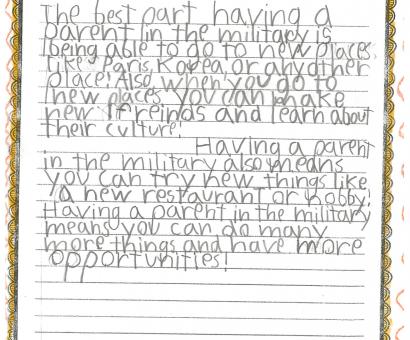 The best part having a
parent in the military is
being able to do to new places
like Paris, Korea or any other
place! Also when you go to
new places you can make
new freinds and learn about
their culture!
Having a parent
in the military also means
you can try new things like
a new restaurant or hobby!
Having a parent in the military
means you can do many
more things and have more
opportunities!